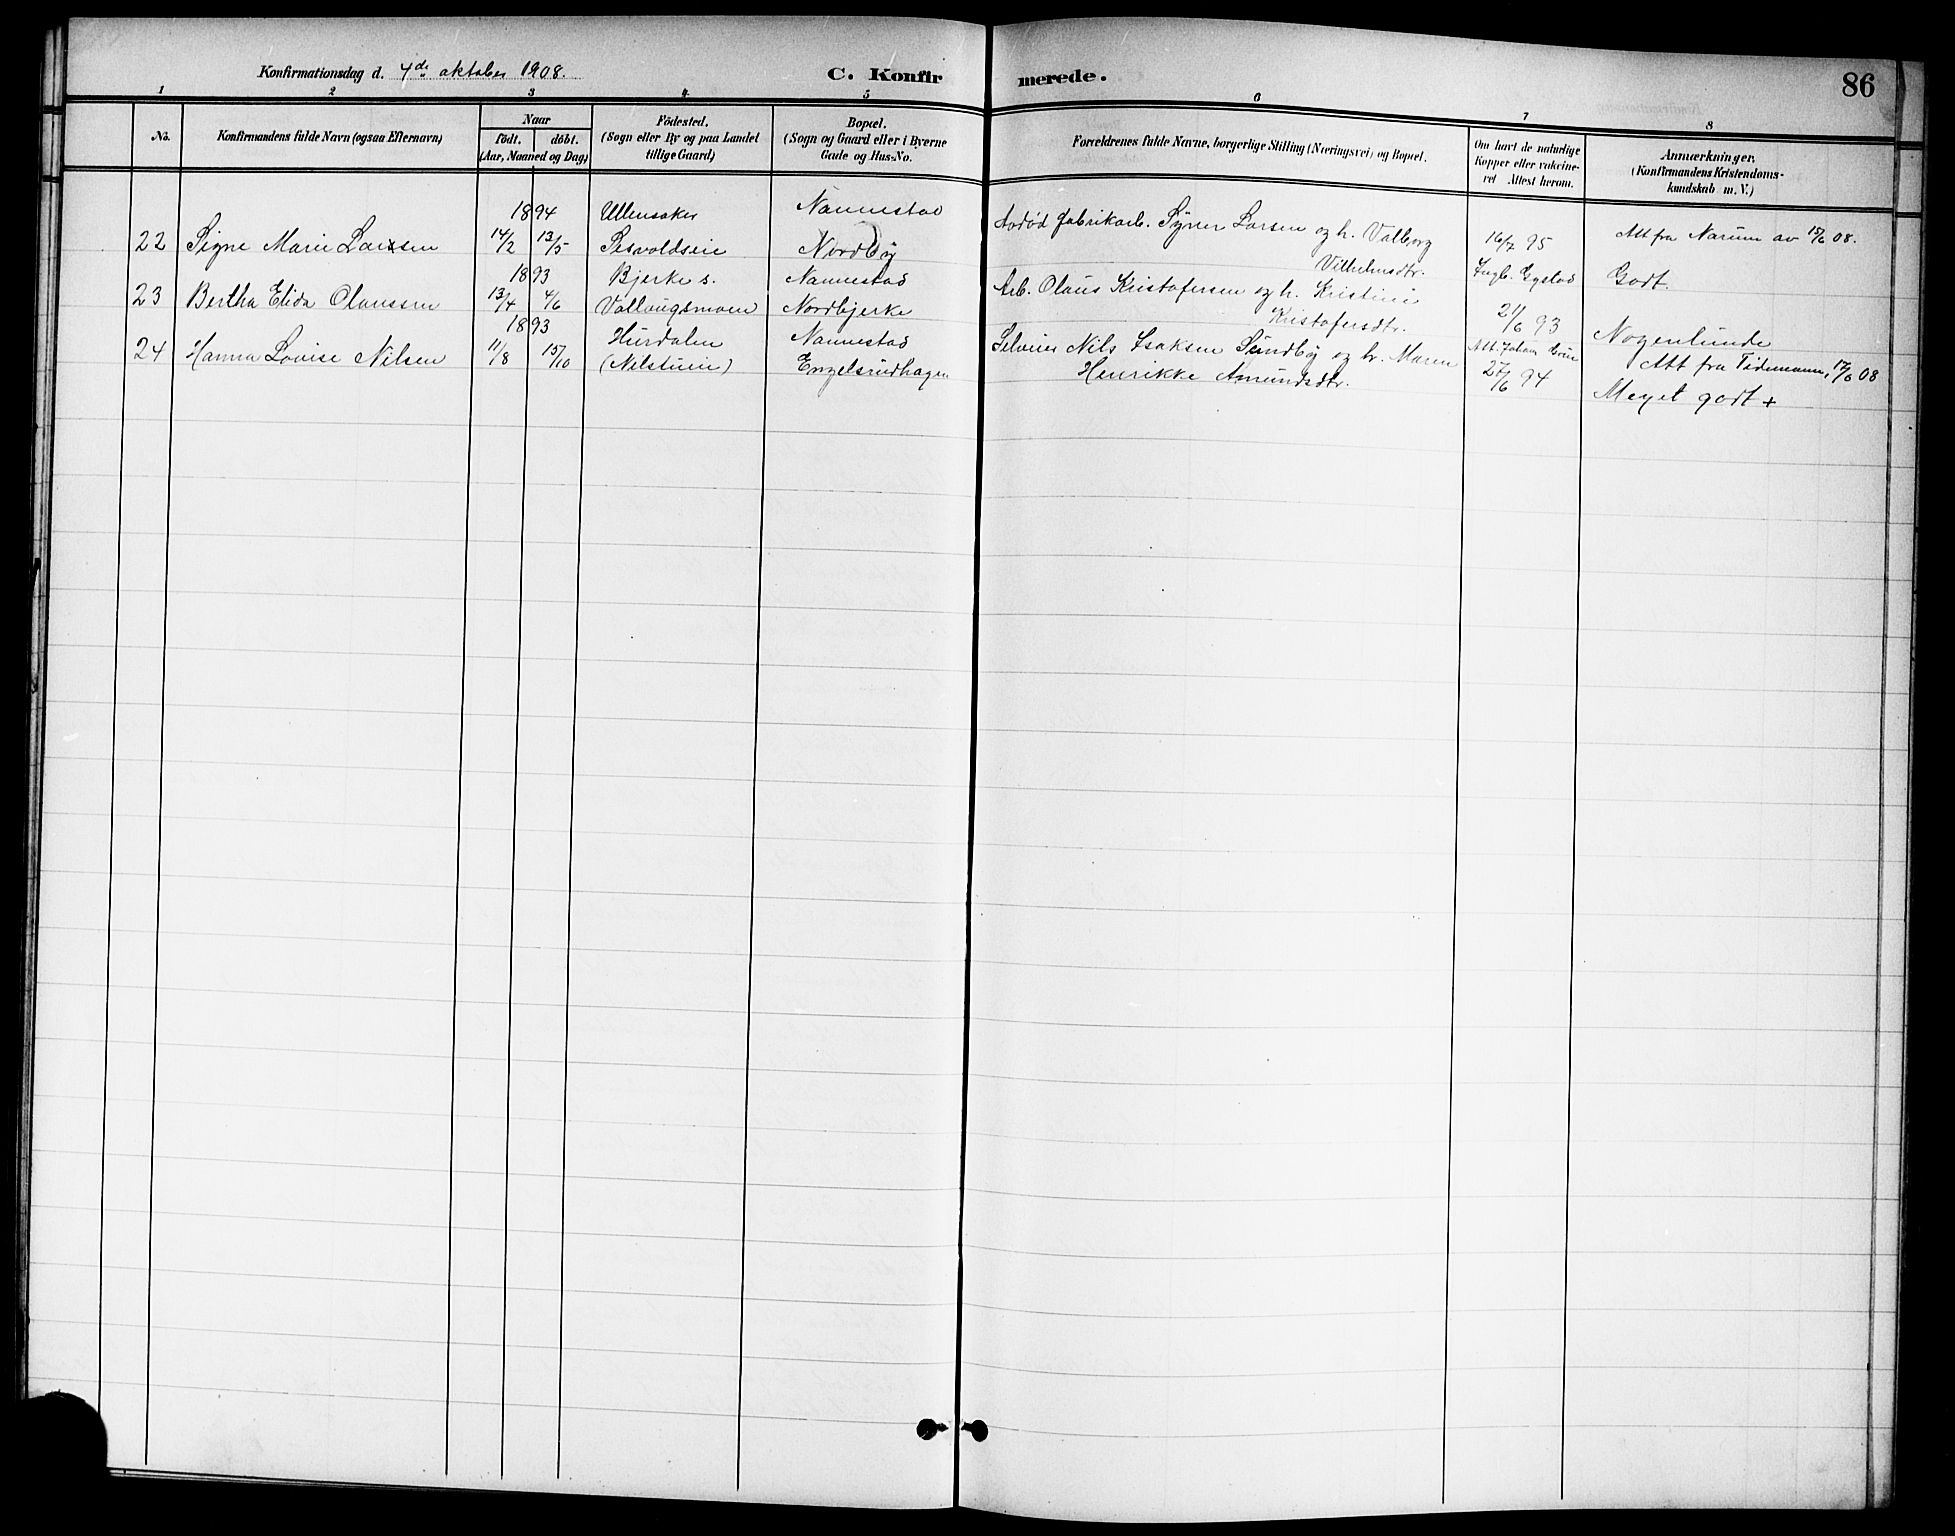 Konfirmationsdag d. 4de oktober 1908.
C. Konfirmerede.
86
1 2 3 4 5 6 7 8
No.
Konfirmandens fulde Navn (ogsaa Efternavn)
Naar
födt. döbt.
(Aar, Maaned og Dag)
Födested.
(Sogn eller By og paa Landet
tillige Gaard)
Bopæl.
(Sogn og Gaard eller i Byerne
Gade og Hus-No.
Forældrenes fulde Navne, borgerlige Stilling (Næringsvei) og Bopæl.
Om havt de naturlige
Kopper eller vakcine-
ret Attest herom.
Anmærkninger.
(Konfirmandens Kristendoms-
kundskab m. V.)
1894 Ullensaker Nannestad
22 Signe Marie Larsen 14/2 13/5 Nordby
Fabrikarb. Syver Larsen og h. Valborg
Vilhelmsdtr.
16/7 95
Ingb. Gystad
Att fra Narum av 15/6 08.
Godt.
1893 Bjerke s. Nannestad
23 Bertha Elida Olaussen 13/4 4/6 Vallaugsmoen Nordbjerke
Arb. Olaus Kristofersen og h. Kristine
Kristofersdtr.
21/6 93
Nogenlunde
1893 Hurdalen Nannestad
24 Hanna Lovise Nilsen 11/8 15/10 (Nilstuen) Engelsrudhagen
Selveier Nils Isaksen Sundby og h. Maren
Henrikke Amundsdtr.
Att. Johan
27/6 94
Att fra Tidemann, 17/6 08
Meget godt +